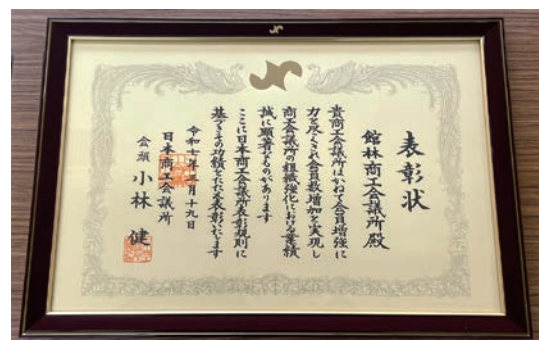 表彰状
館林商工会議所殿
貴商工会議所はかねて会員増強に
力を尽くされ会員数増加を実現し
商工会議所の組織強化における業績
誠に顕著なものがあります
ここに日本商工会議所表彰規則に
基づきその功績をたたえ表彰いたします
令和七年三月十九日
日本商工会議所
会頭 小林 健